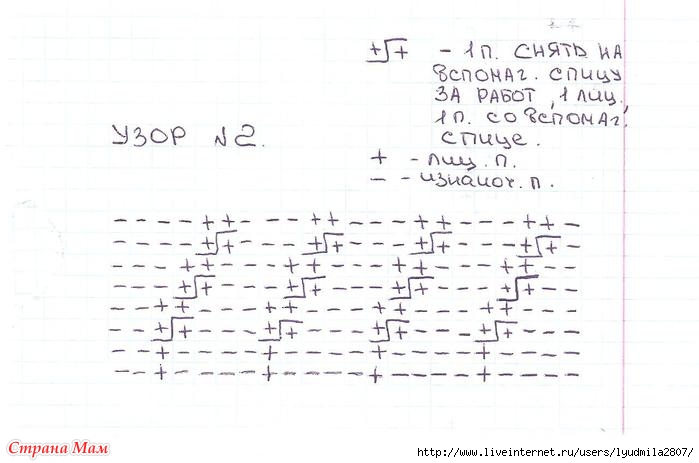 + + - 1 п. СНЯТЬ НА
ВСПОМАГ. СПИЦУ
ЗА РАБОТ, 1 ЛИЦ.,
1 П. СО ВСПОМАГ.
СПИЦЕ.
УЗОР №2.
+ - ЛИЦ. П.
- - ИЗНАНОЧ. П.
- - - - + + - - - + + - - - + + - - - + + -
- - - - + + - - - + + - - - + + - - - + + -
- - - + + - - - + + - - - + + - - - + + - -
- - - + + - - - + + - - - + + - - - + + - -
- - + + - - - + + - - - + + - - - + + - - -
- - + + - - - + + - - - + + - - - + + - - -
- - + - - - - + - - - - + - - - - + - - - -
- - + - - - - + - - - - + - - - - + - - - -
Страна Мам
http://www.liveinternet.ru/users/lyudmila2807/